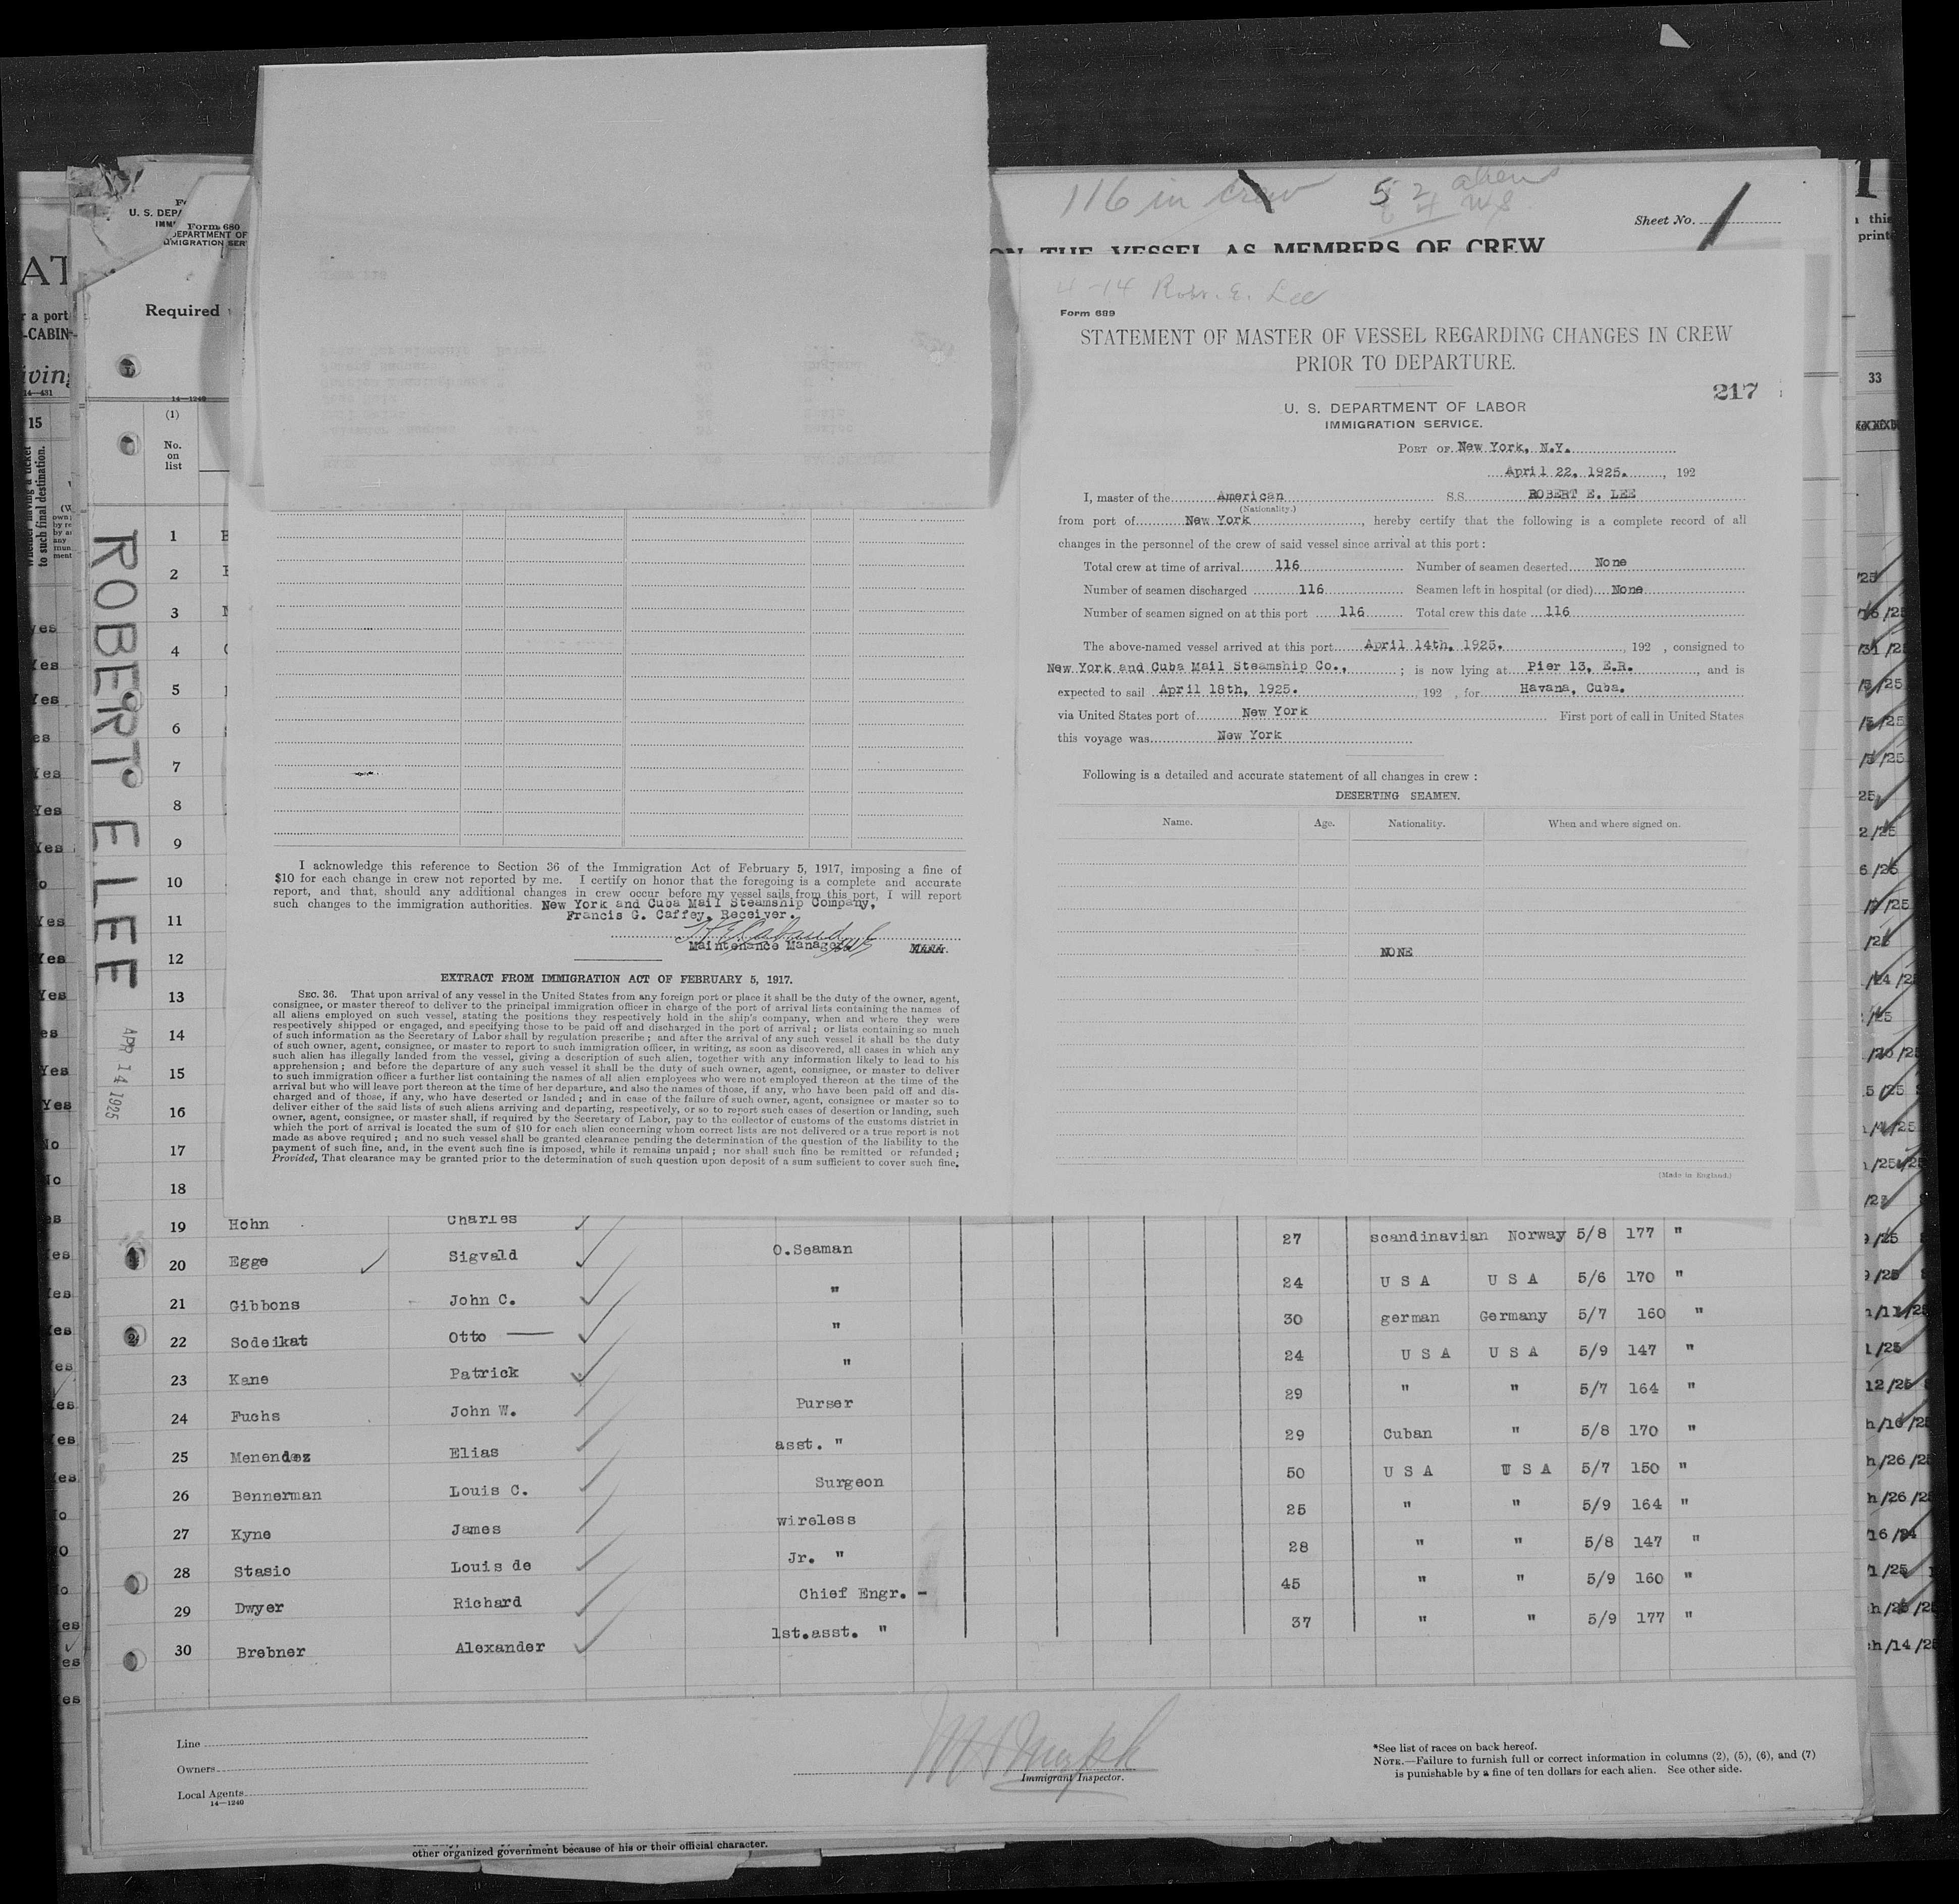 116 in crew 52 aliens
Sheet No. 1
ON THE VESSEL AS MEMBERS OF CREW
Form 680
Required
4-14 Robt. E. Lee
Form 689
STATEMENT OF MASTER OF VESSEL REGARDING CHANGES IN CREW
PRIOR TO DEPARTURE.
217
U. S. DEPARTMENT OF LABOR
IMMIGRATION SERVICE.
PORT OF New York, N.Y.
April 22, 1925. , 192
I, master of the American S.S. ROBERT E. LEE
(Nationality.)
from port of New York, hereby certify that the following is a complete record of all
changes in the personnel of the crew of said vessel since arrival at this port:
Total crew at time of arrival 116 Number of seamen deserted None
Number of seamen discharged 116 Seamen left in hospital (or died) None
Number of seamen signed on at this port 116 Total crew this date 116
The above-named vessel arrived at this port April 14th, 1925. , 192 , consigned to
New York and Cuba Mail Steamship Co., ; is now lying at Pier 13, E.R. , and is
expected to sail April 18th, 1925. , 192 , for Havana, Cuba.
via United States port of New York First port of call in United States
this voyage was New York
Following is a detailed and accurate statement of all changes in crew :
DESERTING SEAMEN.
Name. Age. Nationality. When and where signed on.
NONE
(Made in England.)
I acknowledge this reference to Section 36 of the Immigration Act of February 5, 1917, imposing a fine of
$10 for each change in crew not reported by me. I certify on honor that the foregoing is a complete and accurate
report, and that, should any additional changes in crew occur before my vessel sails from this port, I will report
such changes to the immigration authorities. New York and Cuba Mail Steamship Company,
Francis G. Caffey, Receiver.
Maintenance Manager
EXTRACT FROM IMMIGRATION ACT OF FEBRUARY 5, 1917.
SEC. 36. That upon arrival of any vessel in the United States from any foreign port or place it shall be the duty of the owner, agent,
consignee, or master thereof to deliver to the principal immigration officer in charge of the port of arrival lists containing the names of
all aliens employed on such vessel, stating the positions they respectively hold in the ship's company, when and where they were
respectively shipped or engaged, and specifying those to be paid off and discharged in the port of arrival ; or lists containing so much
of such information as the Secretary of Labor shall by regulation prescribe ; and after the arrival of any such vessel it shall be the duty
of such owner, agent, consignee, or master to report to such immigration officer, in writing, as soon as discovered, all cases in which any
such alien has illegally landed from the vessel, giving a description of such alien, together with any information likely to lead to his
apprehension ; and before the departure of any such vessel it shall be the duty of such owner, agent, consignee, or master to deliver
to such immigration officer a further list containing the names of all alien employees who were not employed thereon at the time of the
arrival but who will leave port thereon at the time of her departure, and also the names of those, if any, who have been paid off and dis-
charged and of those, if any, who have deserted or landed ; and in case of the failure of such owner, agent, consignee or master so to
deliver either of the said lists of such aliens arriving and departing, respectively, or so to report such cases of desertion or landing, such
owner, agent, consignee, or master shall, if required by the Secretary of Labor, pay to the collector of customs of the customs district in
which the port of arrival is located the sum of $10 for each alien concerning whom correct lists are not delivered or a true report is not
made as above required ; and no such vessel shall be granted clearance pending the determination of the question of the liability to the
payment of such fine, and, in the event such fine is imposed, while it remains unpaid ; nor shall such fine be remitted or refunded ;
Provided, That clearance may be granted prior to the determination of such question upon deposit of a sum sufficient to cover such fine.
ROBERT E. LEE
APR 14 1925
(1)
No.
on
list
1
2
3
4
5
6
7
8
9
10
11
12
13
14
15
16
17
18
19 Hohn Charles 27 scandinavian Norway 5/8 177 "
20 Egge Sigvald O.Seaman 24 U S A U S A 5/6 170 "
21 Gibbons John C. " 30 german Germany 5/7 160 "
22 Sodeikat Otto " 24 U S A U S A 5/9 147 "
23 Kane Patrick " 29 " " 5/7 164 "
24 Fuchs John W. Purser 29 Cuban " 5/8 170 "
25 Menendez Elias asst. " 50 U S A U S A 5/7 150 "
26 Bennerman Louis C. Surgeon 25 " " 5/9 164 "
27 Kyne James wireless 28 " " 5/8 147 "
28 Stasio Louis de Jr. " 45 " " 5/9 160 "
29 Dwyer Richard Chief Engr. - 37 " " 5/9 177 "
30 Brebner Alexander 1st.asst. "
Line
Owners
Local Agents
14—1240
Immigrant Inspector.
*See list of races on back hereof.
NOTE.—Failure to furnish full or correct information in columns (2), (5), (6), and (7)
is punishable by a fine of ten dollars for each alien. See other side.
other organized government because of his or their official character.